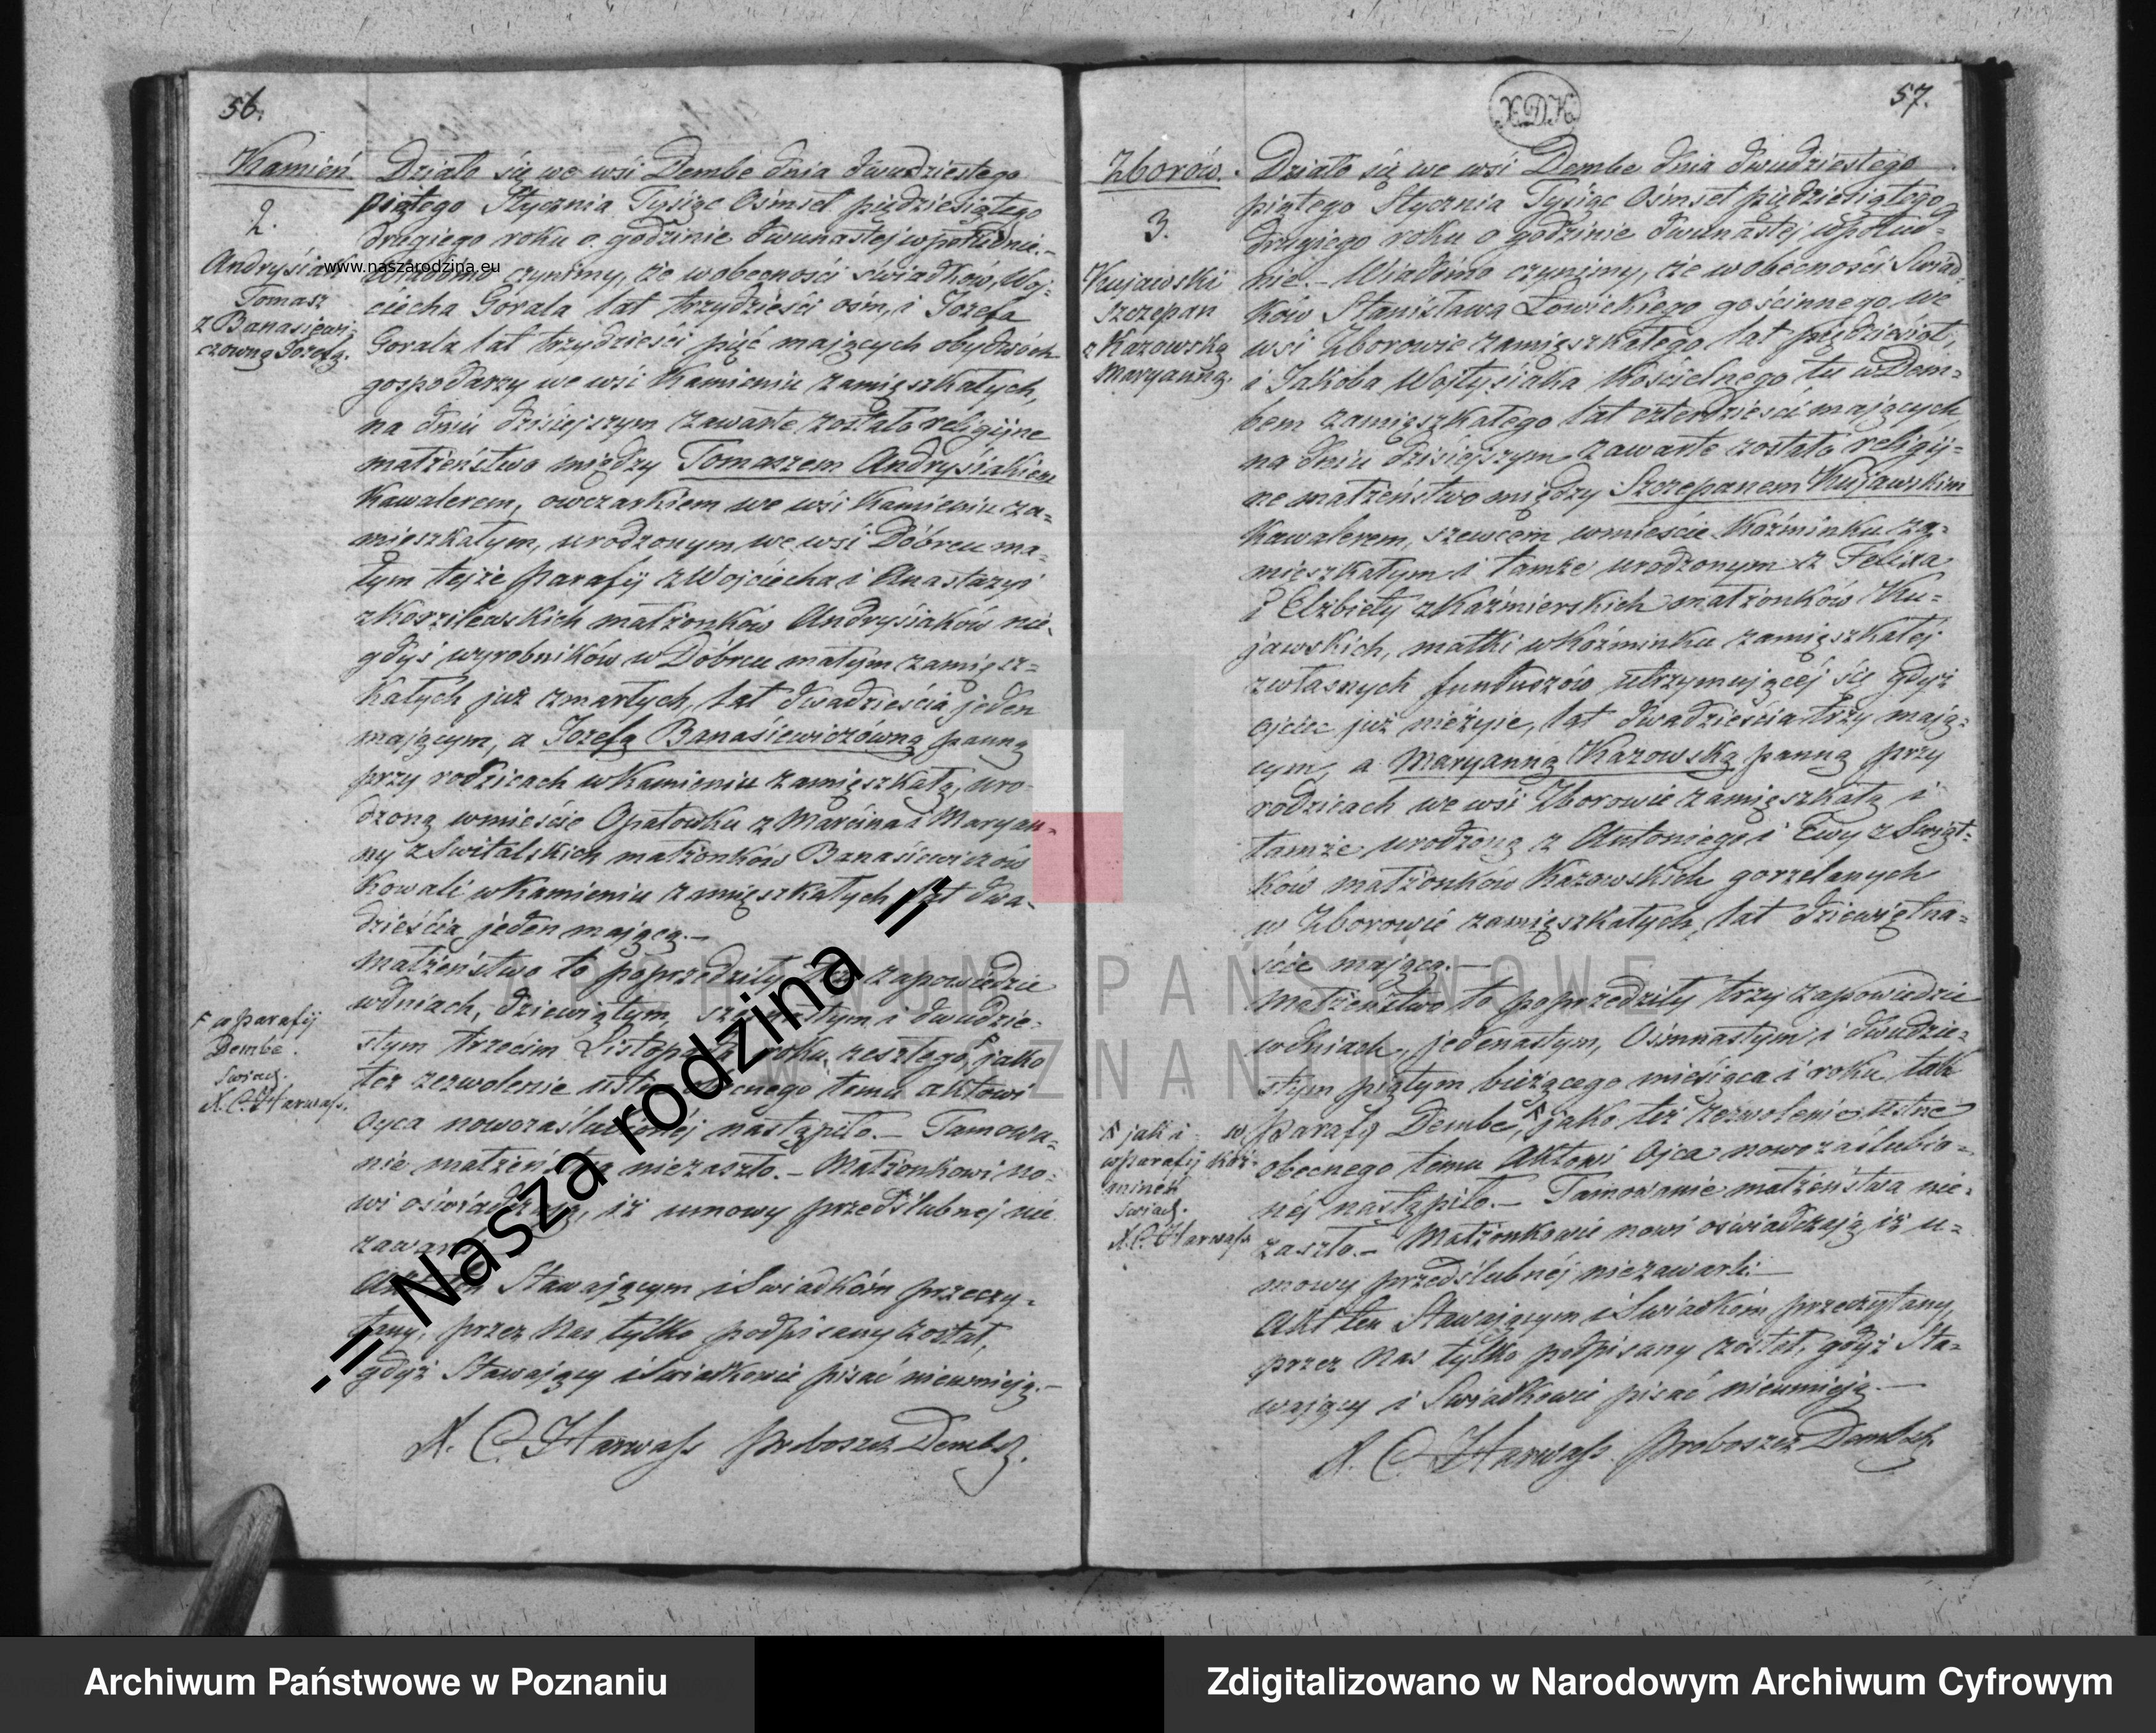 56.
Kamień
2.
Andrysiak
Tomasz
z Banasiewi-
czowną Józefą.
Działo się we wsi Dembe dnia dwudziestego
piątego Stycznia Tysiąc Ośmset pięдziesiątego
drugiego roku o godzinie dwunastej w południe.-
Wiadomo czynimy, że w obecności świadków, Woj-
ciecha Gorala lat trzydzieści ośm, i Józefa
Gorala lat trzydzieści pięć mających obydwóch
gospodarzy we wsi Kamieniu zamięszkałych,
na dniu dzisiejszym zawarte zostało religijne
małżeństwo między Tomaszem Andrysiakiem
Kawalerem, owczarkiem we wsi Kamieniu za-
mieszkałym, urodzonym we wsi Dóbrcu ma-
łym tejże parafij z Wojciecha i Anastazyi
małżonków Andrysiaków nie-
gdyś wyrobników w Dóbrcu małym zamięsz-
kałych już zmarłych, lat dwadzieścia jeden
mającym, a Józefą Banasiewiczówną panną
przy rodzicach w Kamieniu zamięszkałą, uro-
dzoną w mieście Opatowku z Marcina i Maryan-
ny z Switalskich małżonków Banasiewiczów
Kowali w Kamieniu zamięszkałych lat dwa-
dzieścia jeden mającą.-
Małżeństwo to poprzedziły trzy zapowiedzie
w dniach, dziewiątym, szesnastym i dwudzie-
stym trzecim Listopada roku zeszłego, jako
też zezwolenie ustne obecnego temu aktowi
Oyca nowozaślubionéj nastąpiło.- Tamowa-
nie małżeństwa niezaszło.- Małżonkowi no-
wi oświadczają, iż umowy przedślubnej nie
zawarli
Akt ten Stawającym i Swiadkóm przeczy-
tany, przez Nas tylko podpisany został,
gdyż Stawający i Swiadkowie pisać nieumieją.-
X. C. Harwass Proboszcz Dembsk.
w Parafij
Dembe.
Swiad.
X. C. Harwass.
57.
X.D.K.
Zborów.
3.
Kujawski
Szczepan
z Kazowską
Maryanną.
Działo się we wsi Dembe dnia dwudziestego
piątego Stycznia Tysiąc Ośmset pięдziesiątego
drugiego roku o godzinie dwunastej w połud-
nie.- Wiadomo czynimy, że w obecności Swiad-
ków Stanisława Łowickiego gościnnego we
wsi Zborowie zamięszkałego lat pięćdziesiąt,
i Jakóba Wojtysiaka Kościelnego tu w Dem-
bem zamięszkałego lat czterdzieści mających,
na dniu dzisiejszym zawarte zostało religij-
ne małżeństwo między Szczepanem Kujawskim
Kawalerem, szewcem w mieście Koźminku za-
mieszkałym i tamże urodzonym z Felixa
i Elżbiety z Kaźmierskich małżonków Ku-
jawskich, matki w Koźminku zamięszkałej
z własnych funduszów utrzymującéj się gdyż
ojciec już nieżyie, lat dwadzieścia trzy mają-
cym, a Maryanną Kazowską panną przy
rodzicach we wsi Zborowie zamięszkałą i
tamże urodzoną z Antoniego i Ewy z Swiąt-
ków małżonków Kazowskich gorzelanych
w Zborowie zamięszkałych, lat dziewiętna-
ście mającą.-
Małżeństwo to poprzedziły trzy zapowiedzie
w dniach, jedenastym, Osiemnastym i dwudzie-
stym piątym bieżącego miesiąca i roku tak
w Parafij Dembe, jako też zezwolenie ustne
obecnego temu Aktowi Ojca nowozaślubio-
néj nastąpiło.- Tamowanie małżeństwa nie-
zaszło.- Małżonkowie nowi oświadczają iż u-
mowy przedślubnéj niezawarli.-
Akt ten Stawającym i Swiadkóm przeczytany,
przez Nas tylko podpisany został, gdyż Sta-
wający i Swiadkowie pisać nieumieją.-
X. C. Harwass Proboszcz Dembsk.
jak i
w parafij Koź-
minek
Swiad.
X. C. Harwass
www.naszarodzina.eu
-= Nasza rodzina =-
ARCHIWUM PAŃSTWOWE
W POZNANIU
Archiwum Państwowe w Poznaniu
Zdigitalizowano w Narodowym Archiwum Cyfrowym